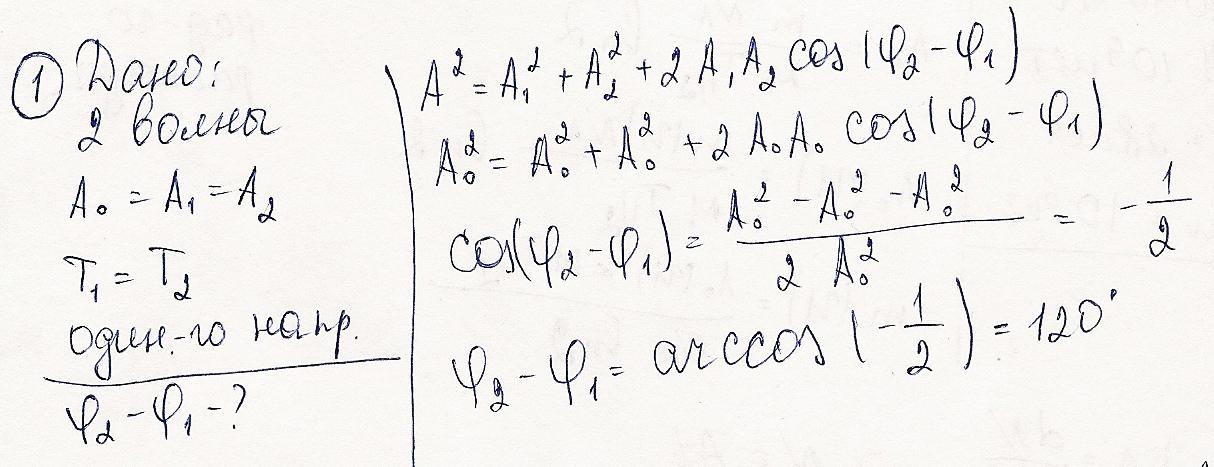 ① Дано:
2 волны
A₀ = A₁ = A₂
T₁ = T₂
один.-го напр.
φ₂ - φ₁ - ?
A² = A₁² + A₂² + 2 A₁ A₂ cos (φ₂ - φ₁)
A₀² = A₀² + A₀² + 2 A₀ A₀ cos (φ₂ - φ₁)
cos(φ₂ - φ₁) = (A₀² - A₀² - A₀²) / (2 A₀²) = - 1/2
φ₂ - φ₁ = arccos (- 1/2) = 120°